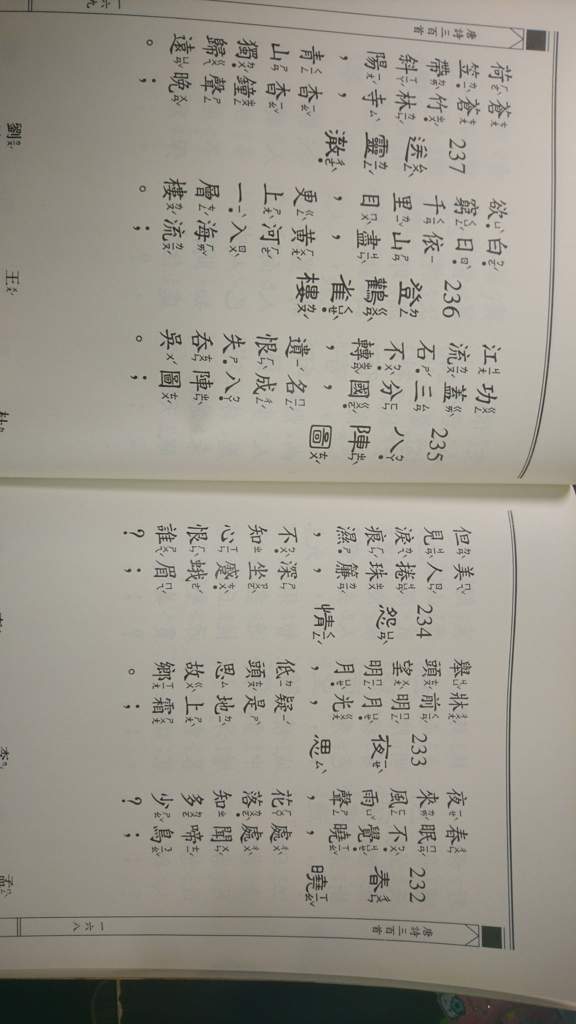 唐詩三百首
一六八
232 春曉
春眠不覺曉，處處聞啼鳥；
夜來風雨聲，花落知多少？
233 夜思
牀前明月光，疑是地上霜；
舉頭望明月，低頭思故鄉。
234 怨情
美人捲珠簾，深坐蹙蛾眉；
但見淚痕濕，不知心恨誰？
235 八陣圖
功蓋三分國，名成八陣圖；
江流石不轉，遺恨失吞吳。
236 登鸛雀樓 王
白日依山盡，黃河入海流；
欲窮千里目，更上一層樓。
237 送靈澈 劉
蒼蒼竹林寺，杳杳鐘聲晚；
荷笠帶斜陽，青山獨歸遠。
唐詩三百首
一六九